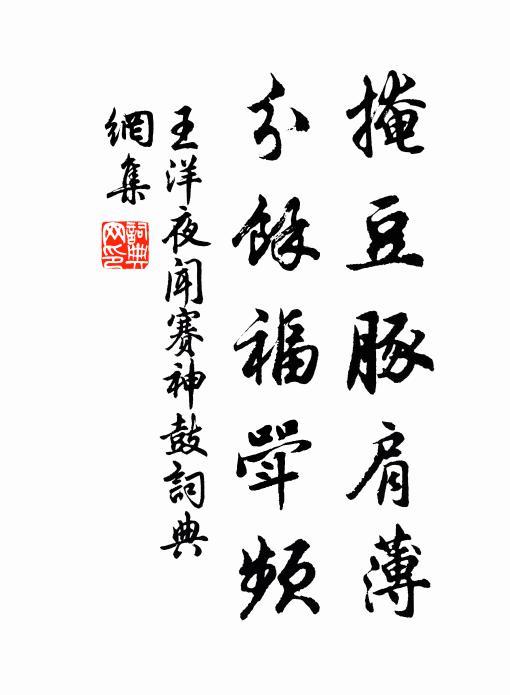 掩豆豚肩薄
分餘福斝頻
王洋夜聞賽神鼓詞典
網集
詞典
网印